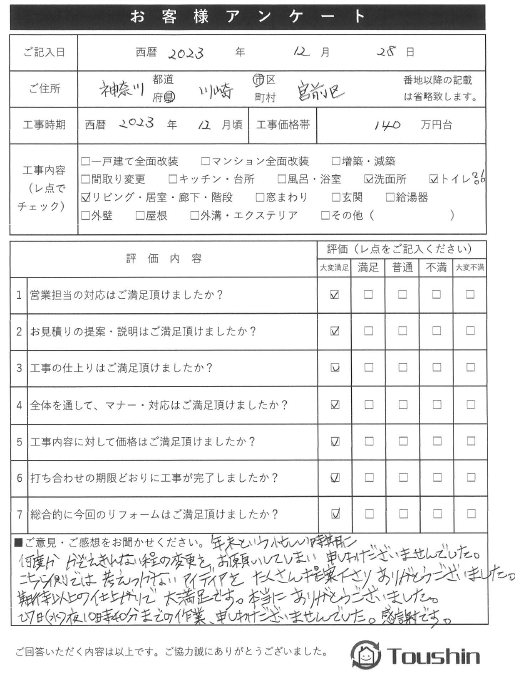 お客様アンケート
ご記入日 西暦 2023 年 12 月 28 日
ご住所 神奈川 都道府県 川崎 市区町村 宮前区 番地以降の記載は省略致します。
工事時期 西暦 2023 年 12 月頃 工事価格帯 140 万円台
工事内容(レ点でチェック)
□一戸建て全面改装 □マンション全面改装 □増築・減築
□間取り変更 □キッチン・台所 □風呂・浴室 ☑洗面所 ☑トイレ
☑リビング・居室・廊下・階段 □窓まわり □玄関 □給湯器
□外壁 □屋根 □外溝・エクステリア □その他( )
評価内容 評価(レ点をご記入ください)
大変満足 満足 普通 不満 大変不満
1 営業担当の対応はご満足頂けましたか? ☑ □ □ □ □
2 お見積りの提案・説明はご満足頂けましたか? ☑ □ □ □ □
3 工事の仕上りはご満足頂けましたか? ☑ □ □ □ □
4 全体を通して、マナー・対応はご満足頂けましたか? ☑ □ □ □ □
5 工事内容に対して価格はご満足頂けましたか? ☑ □ □ □ □
6 打ち合わせの期限どおりに工事が完了しましたか? ☑ □ □ □ □
7 総合的に今回のリフォームはご満足頂けましたか? ☑ □ □ □ □
■ご意見・ご感想をお聞かせください。年末という忙しい時期に
何度か かぞえきれない程の変更を お願いしてしまい 申しわけございませんでした。
こちら側では 考えつかない アイデアを たくさん提案下さり ありがとうございました。
期待以上の仕上がりで 大満足です。本当に ありがとうございました。
27日(水)夜10時40分までの作業、申しわけございませんでした。感謝です。
ご回答いただく内容は以上です。ご協力誠にありがとうございました。
Toushin